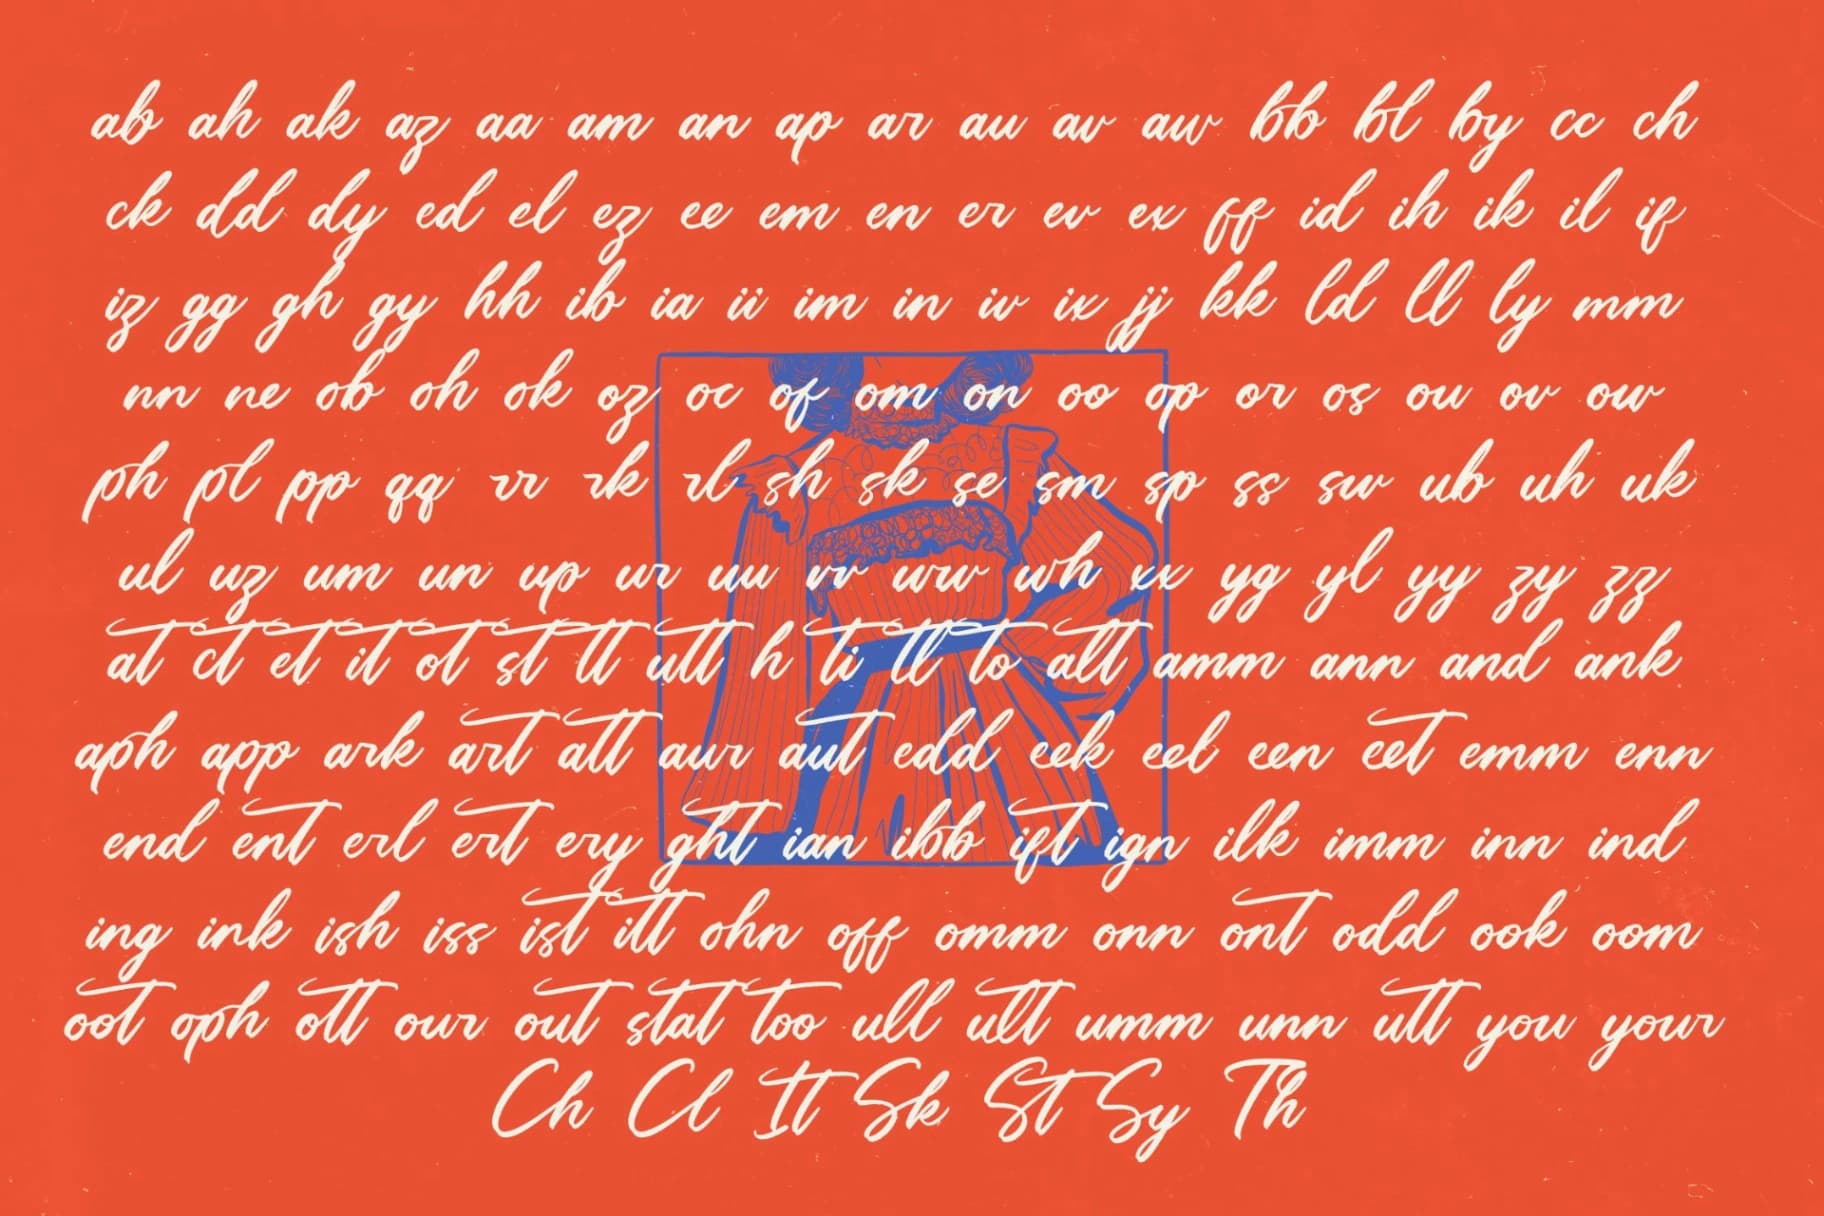 ab ah ak az aa am an ap ar au av aw bb bl by cc ch
ck dd dy ed el ez ee em en er ev ex ff id ih ik il if
iz gg gh gy hh ib ia ii im in iv ix jj kk ld ll ly mm
nn ne ob oh ok oz oc of om on oo op or os ou ov ow
ph pl pp qq rr rk rl sh sk se sm sp ss sw ub uh uk
ul uz um un up ur uu vv ww wh xx yg yl yy zy zz
at ct et it ot st tt utt h ti tl to alt amm ann and ank
aph app ark art att aur aut edd eek eel een eet emm enn
end ent erl ert ery ght ian ibb ift ign ilk imm inn ind
ing ink ish iss ist itt ohn off omm onn ont odd ook oom
oot oph ott our out stat too ull ult umm unn utt you your
Ch Cl It Sk St Sy Th